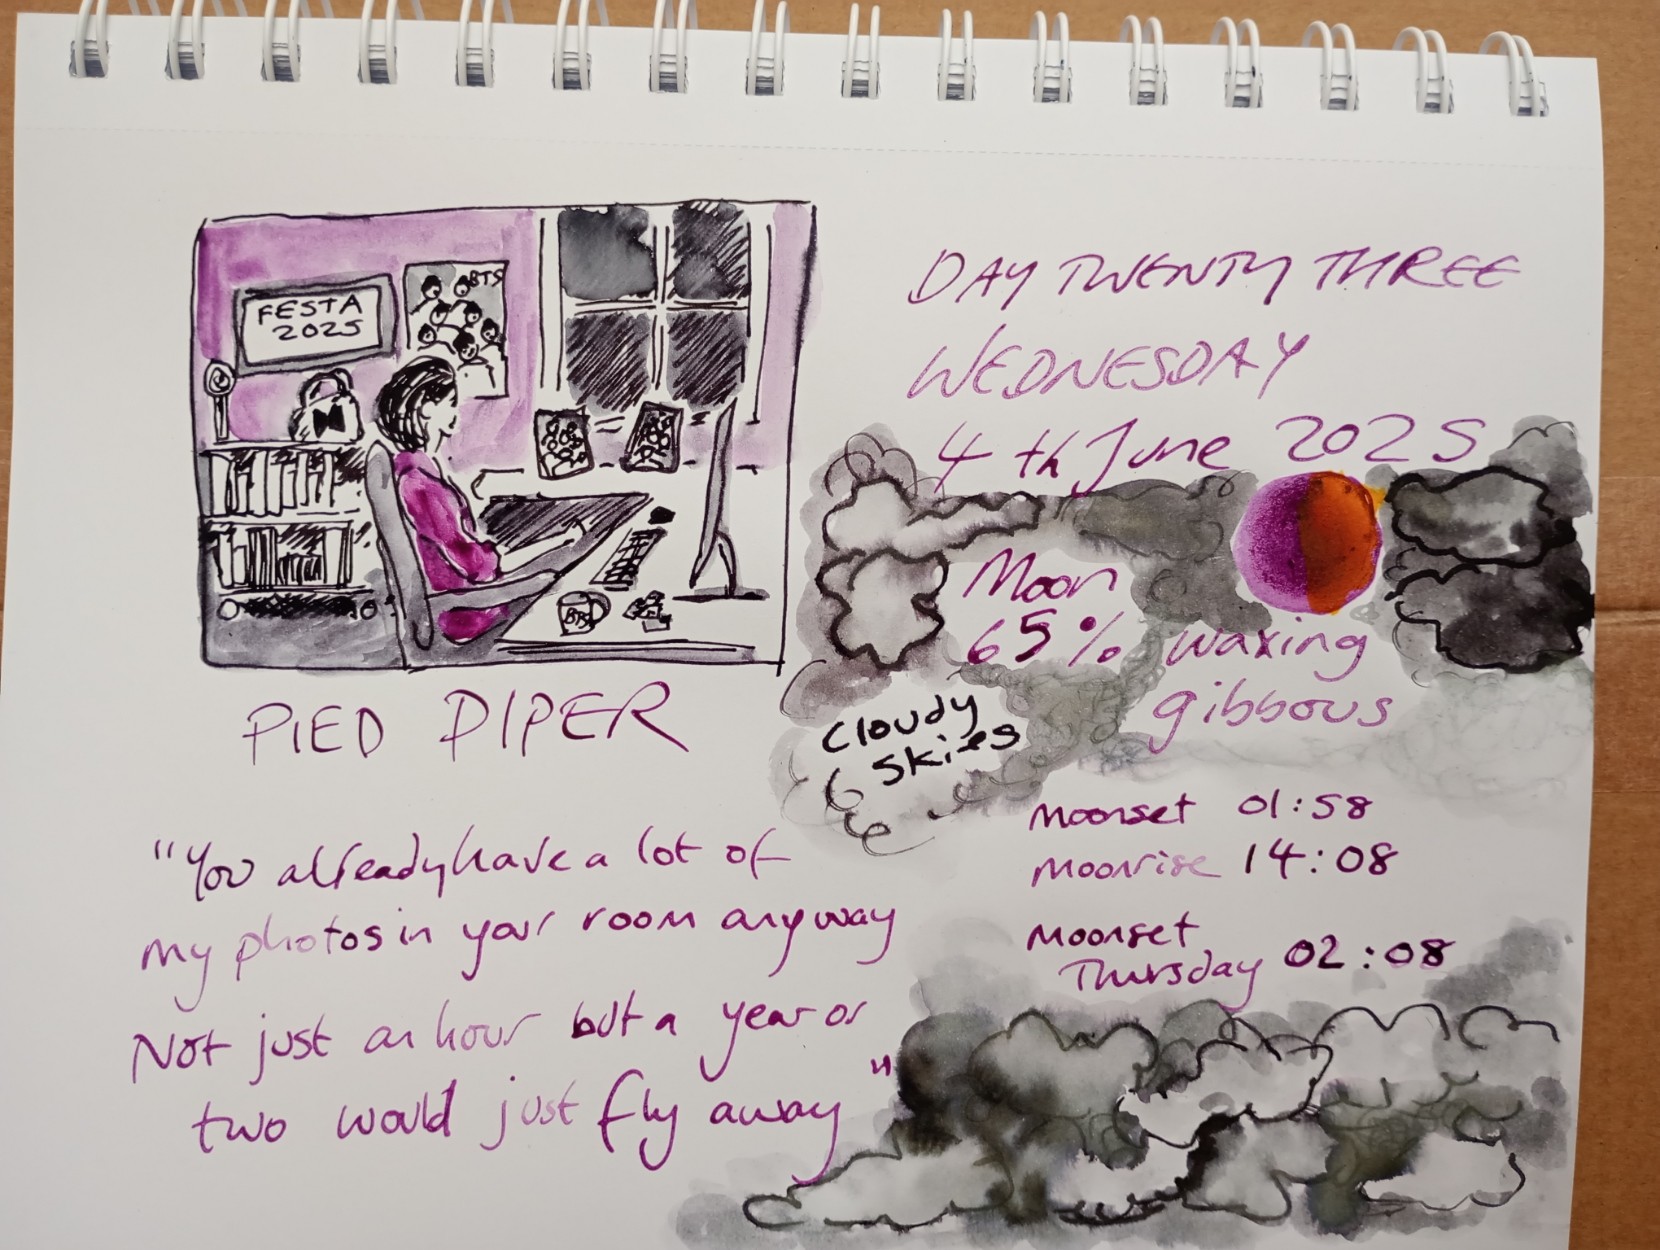 FESTA
2025
BTS
BTS
PIED PIPER
"You already have a lot of
my photos in your room anyway
Not just an hour but a year or
two would just fly away"
DAY TWENTY THREE
WEDNESDAY
4th June 2025
Moon
65% waxing
gibbous
Cloudy
Skies
Moonset 01:58
Moonrise 14:08
Moonset
Thursday 02:08